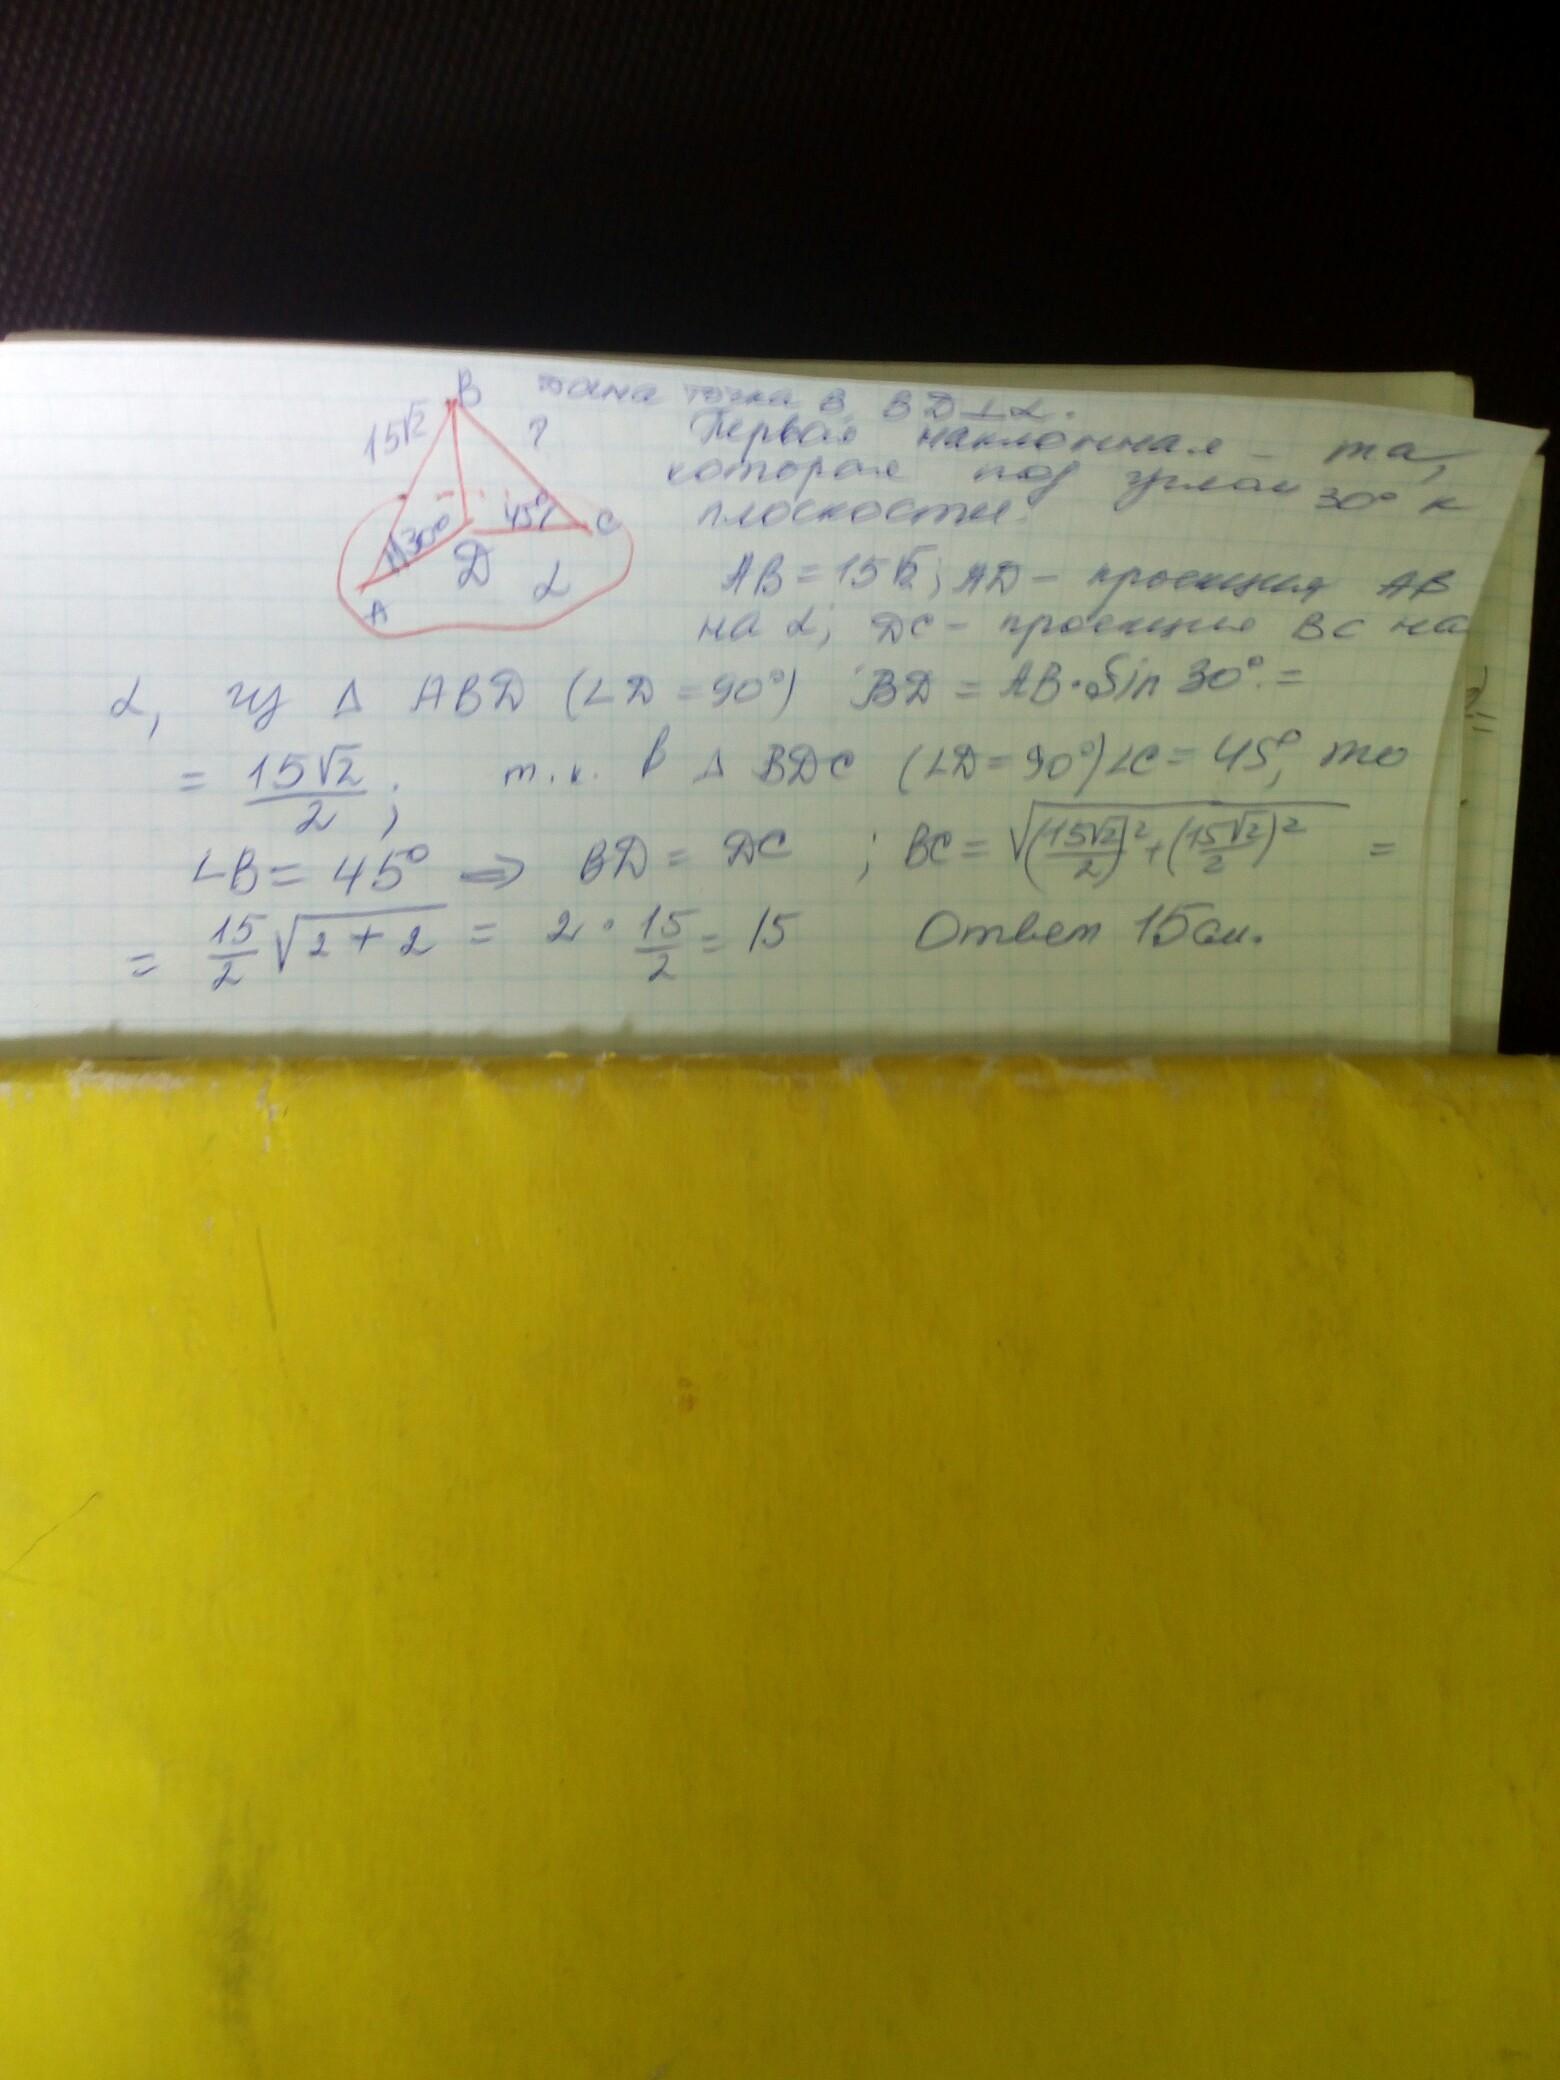 B
15√2
?
30°
45°
C
D
α
A
точка B, BD⊥α.
Первая наклонная – та,
которая под углом 30° к
плоскости.
AB = 15√2; AD – проекция AB
на α; DC – проекция BC на
α, из Δ ABD (∠D = 90°) BD = AB·Sin 30° =
= 15√2/2; т.к. в Δ BDC (∠D = 90°) ∠C = 45°, то
∠B = 45° ⇒ BD = DC ; BC = √((15√2/2)² + (15√2/2)²) =
= 15/2 √(2 + 2) = 2 · 15/2 = 15 Ответ 15 см.